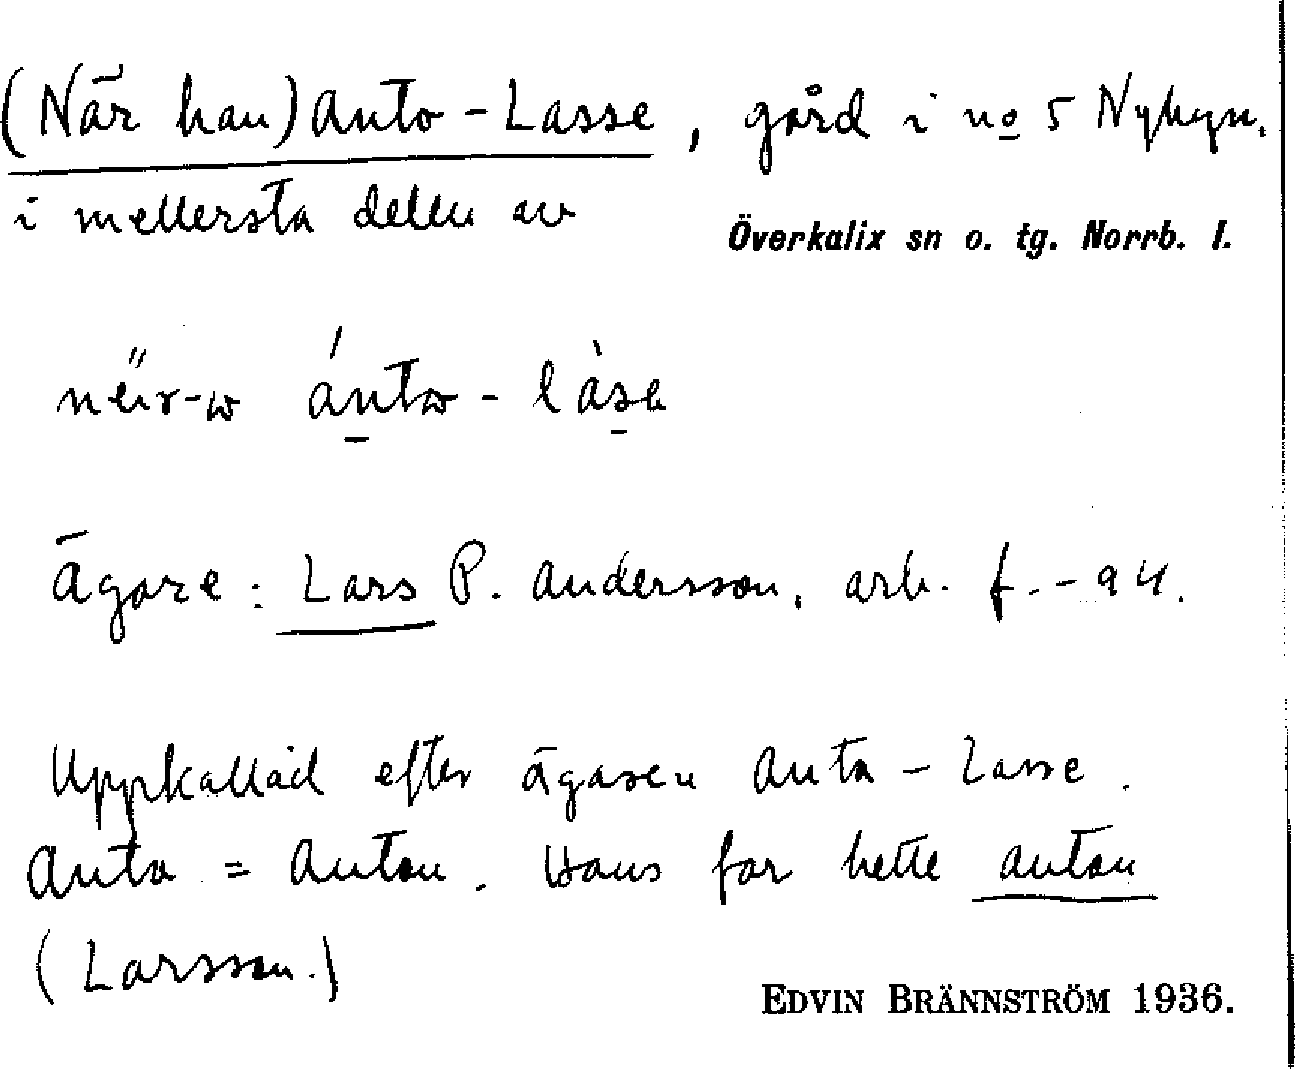 (När han) Anto-Lasse, gård i no 5 Nybyn.
i mellersta delen av
Överkalix sn o. tg. Norrb. l.
ántω-làsa
Ägare: Lars P. Andersson, arb. f. -94.
Uppkallad efter ägaren Anto-Lasse.
Anto = Anton. Hans far hette Anton
(Larsson.)
EDVIN BRÄNNSTRÖM 1936.